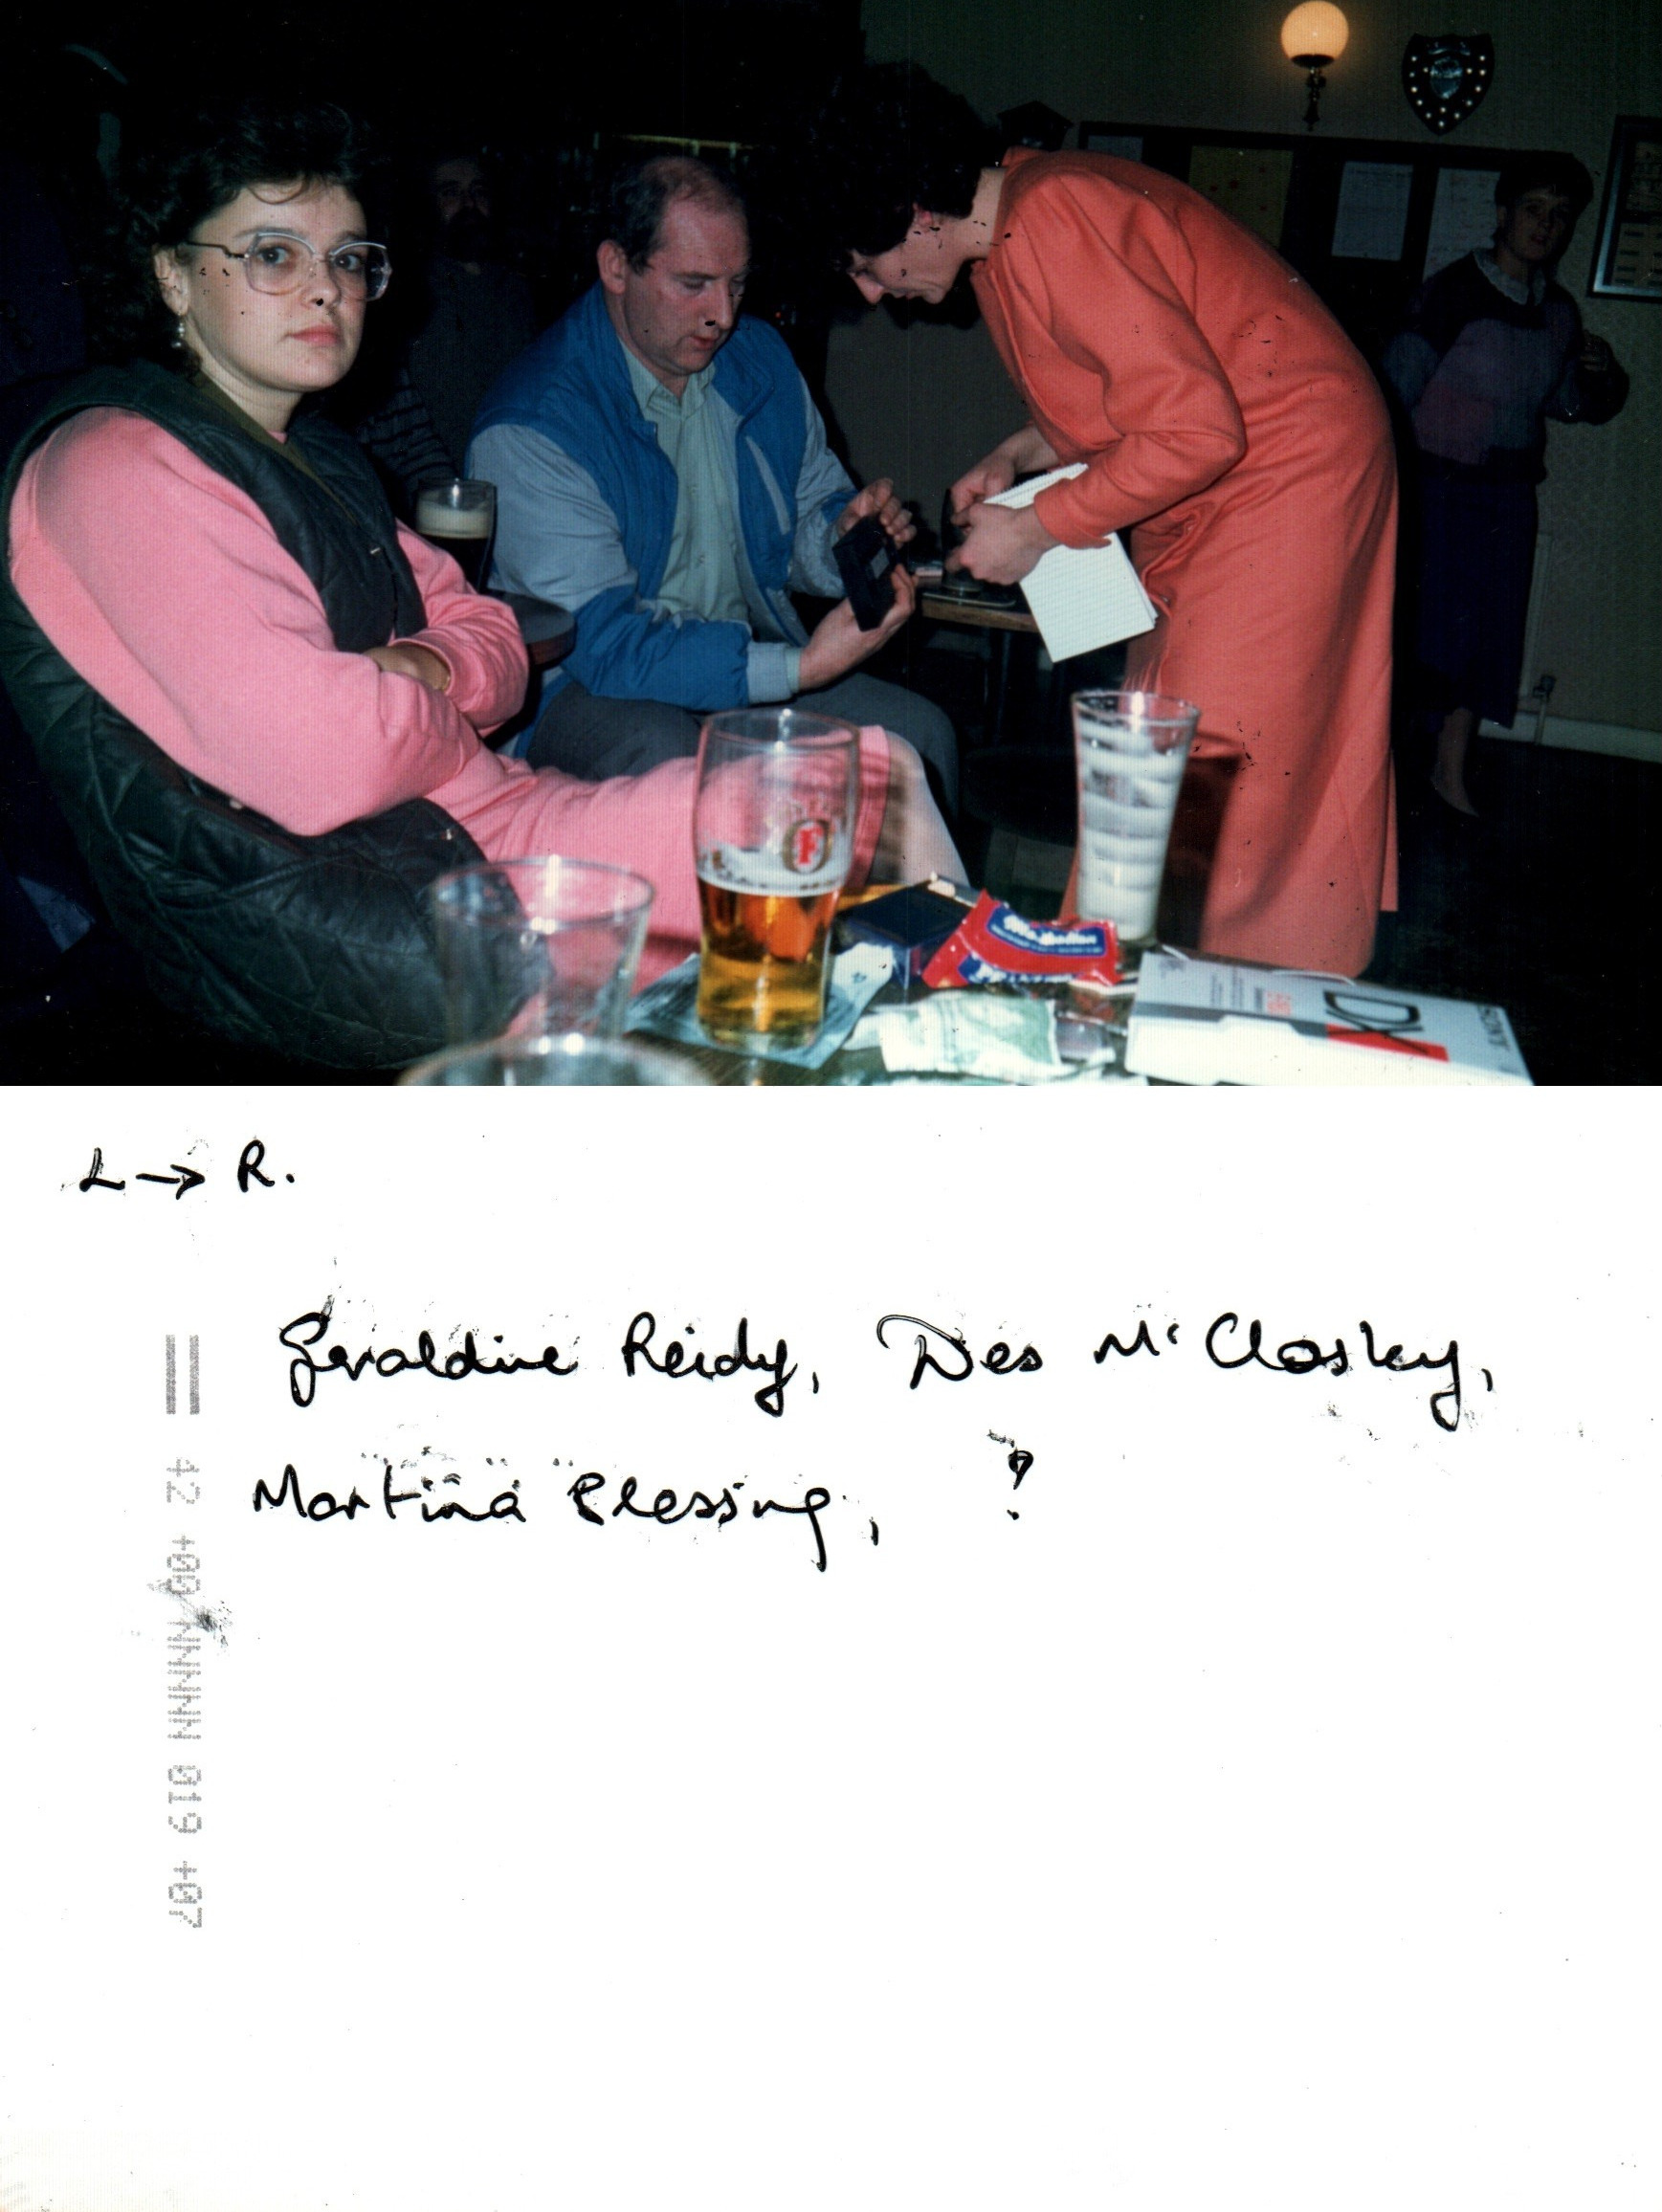 F
SONY
L → R.
Geraldine Reidy, Des McCloskey,
Martina Blessing, ?
42 +00 NNNNN 019 +07